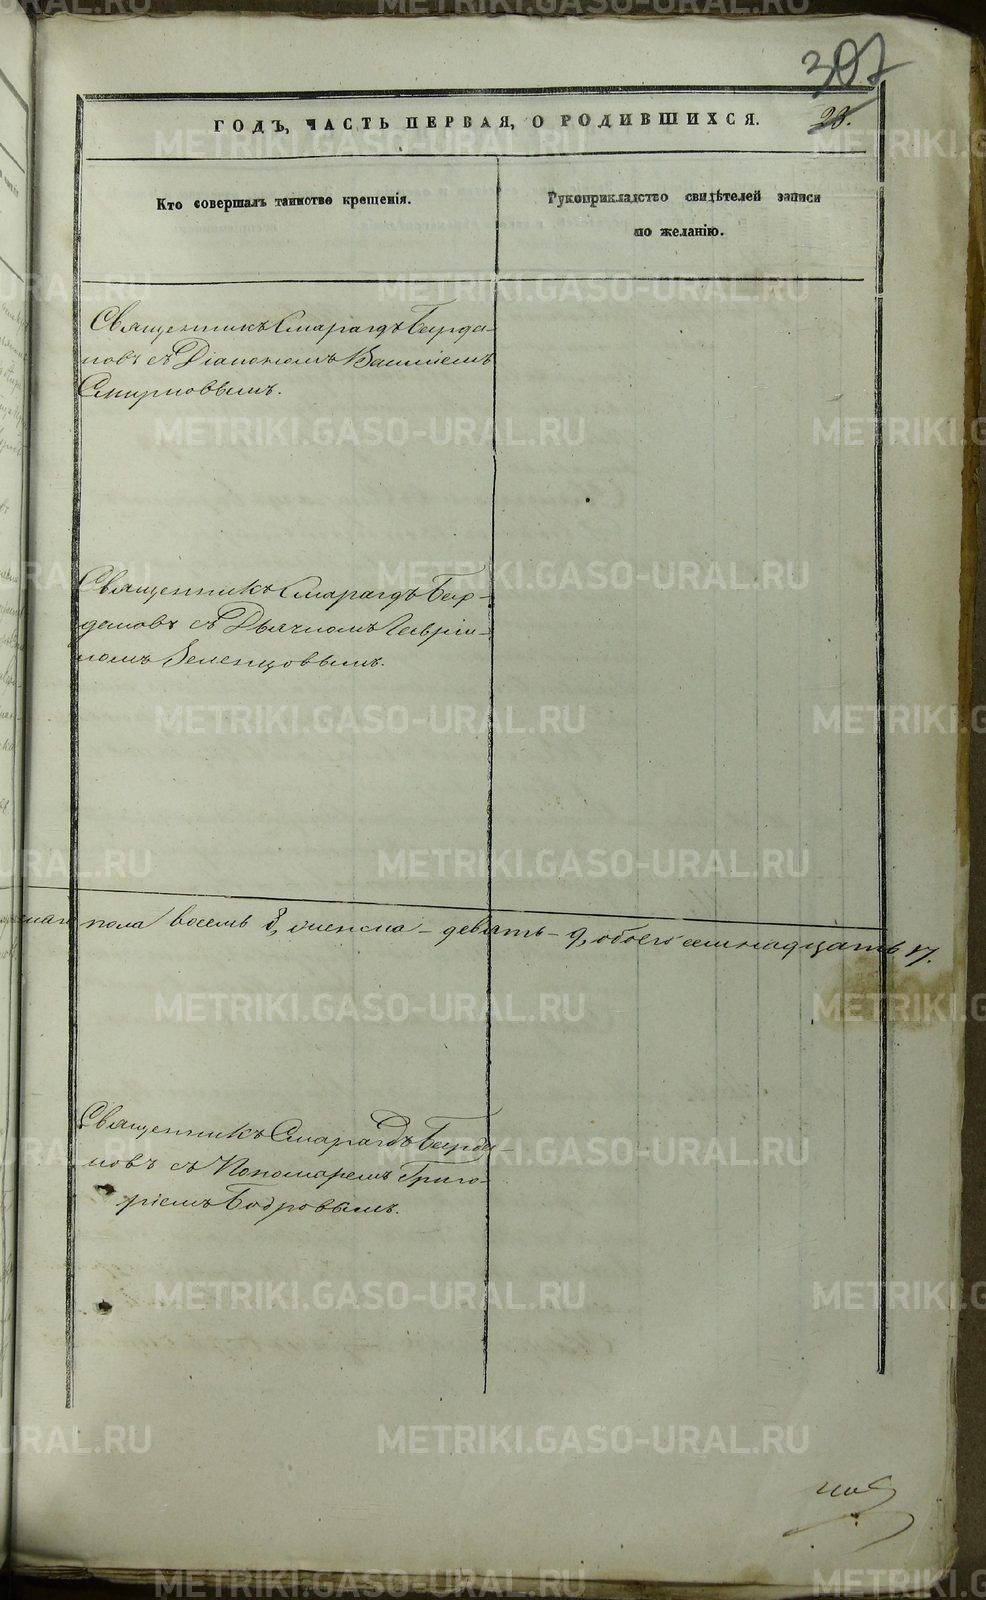 307
ГОДЪ, ЧАСТЬ ПЕРВАЯ, О РОДИВШИХСЯ.
23.
Кто совершалъ таинство крещенія.
Рукоприкладство свидѣтелей записи
по желанію.
Священникъ Смарагдъ Бирда-
новъ съ Діакономъ Василіемъ
Смирновымъ.
Священникъ Смарагдъ Бир-
дановъ съ Дьячкомъ Гавріи-
ломъ Зеленцовымъ.
пола восемь 8, женска – девять – 9, обоего семнадцать 17.
Священникъ Смарагдъ Бирда-
новъ съ Пономаремъ Григо-
ріемъ Бобровымъ.
METRIKI.GASO-URAL.RU